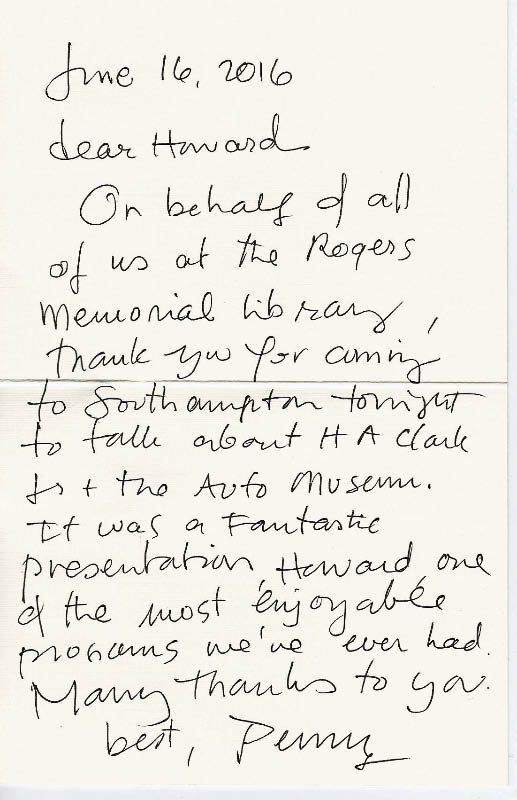 June 16, 2016
dear Howard
On behalf of all
of us at the Rogers
Memorial Library,
thank you for coming
to Southampton tonight
to talk about H A Clark
Jr + the Auto Museum.
It was a Fantastic
presentation, Howard, one
of the most enjoyable
programs we've ever had.
Many thanks to you.
best, Penny